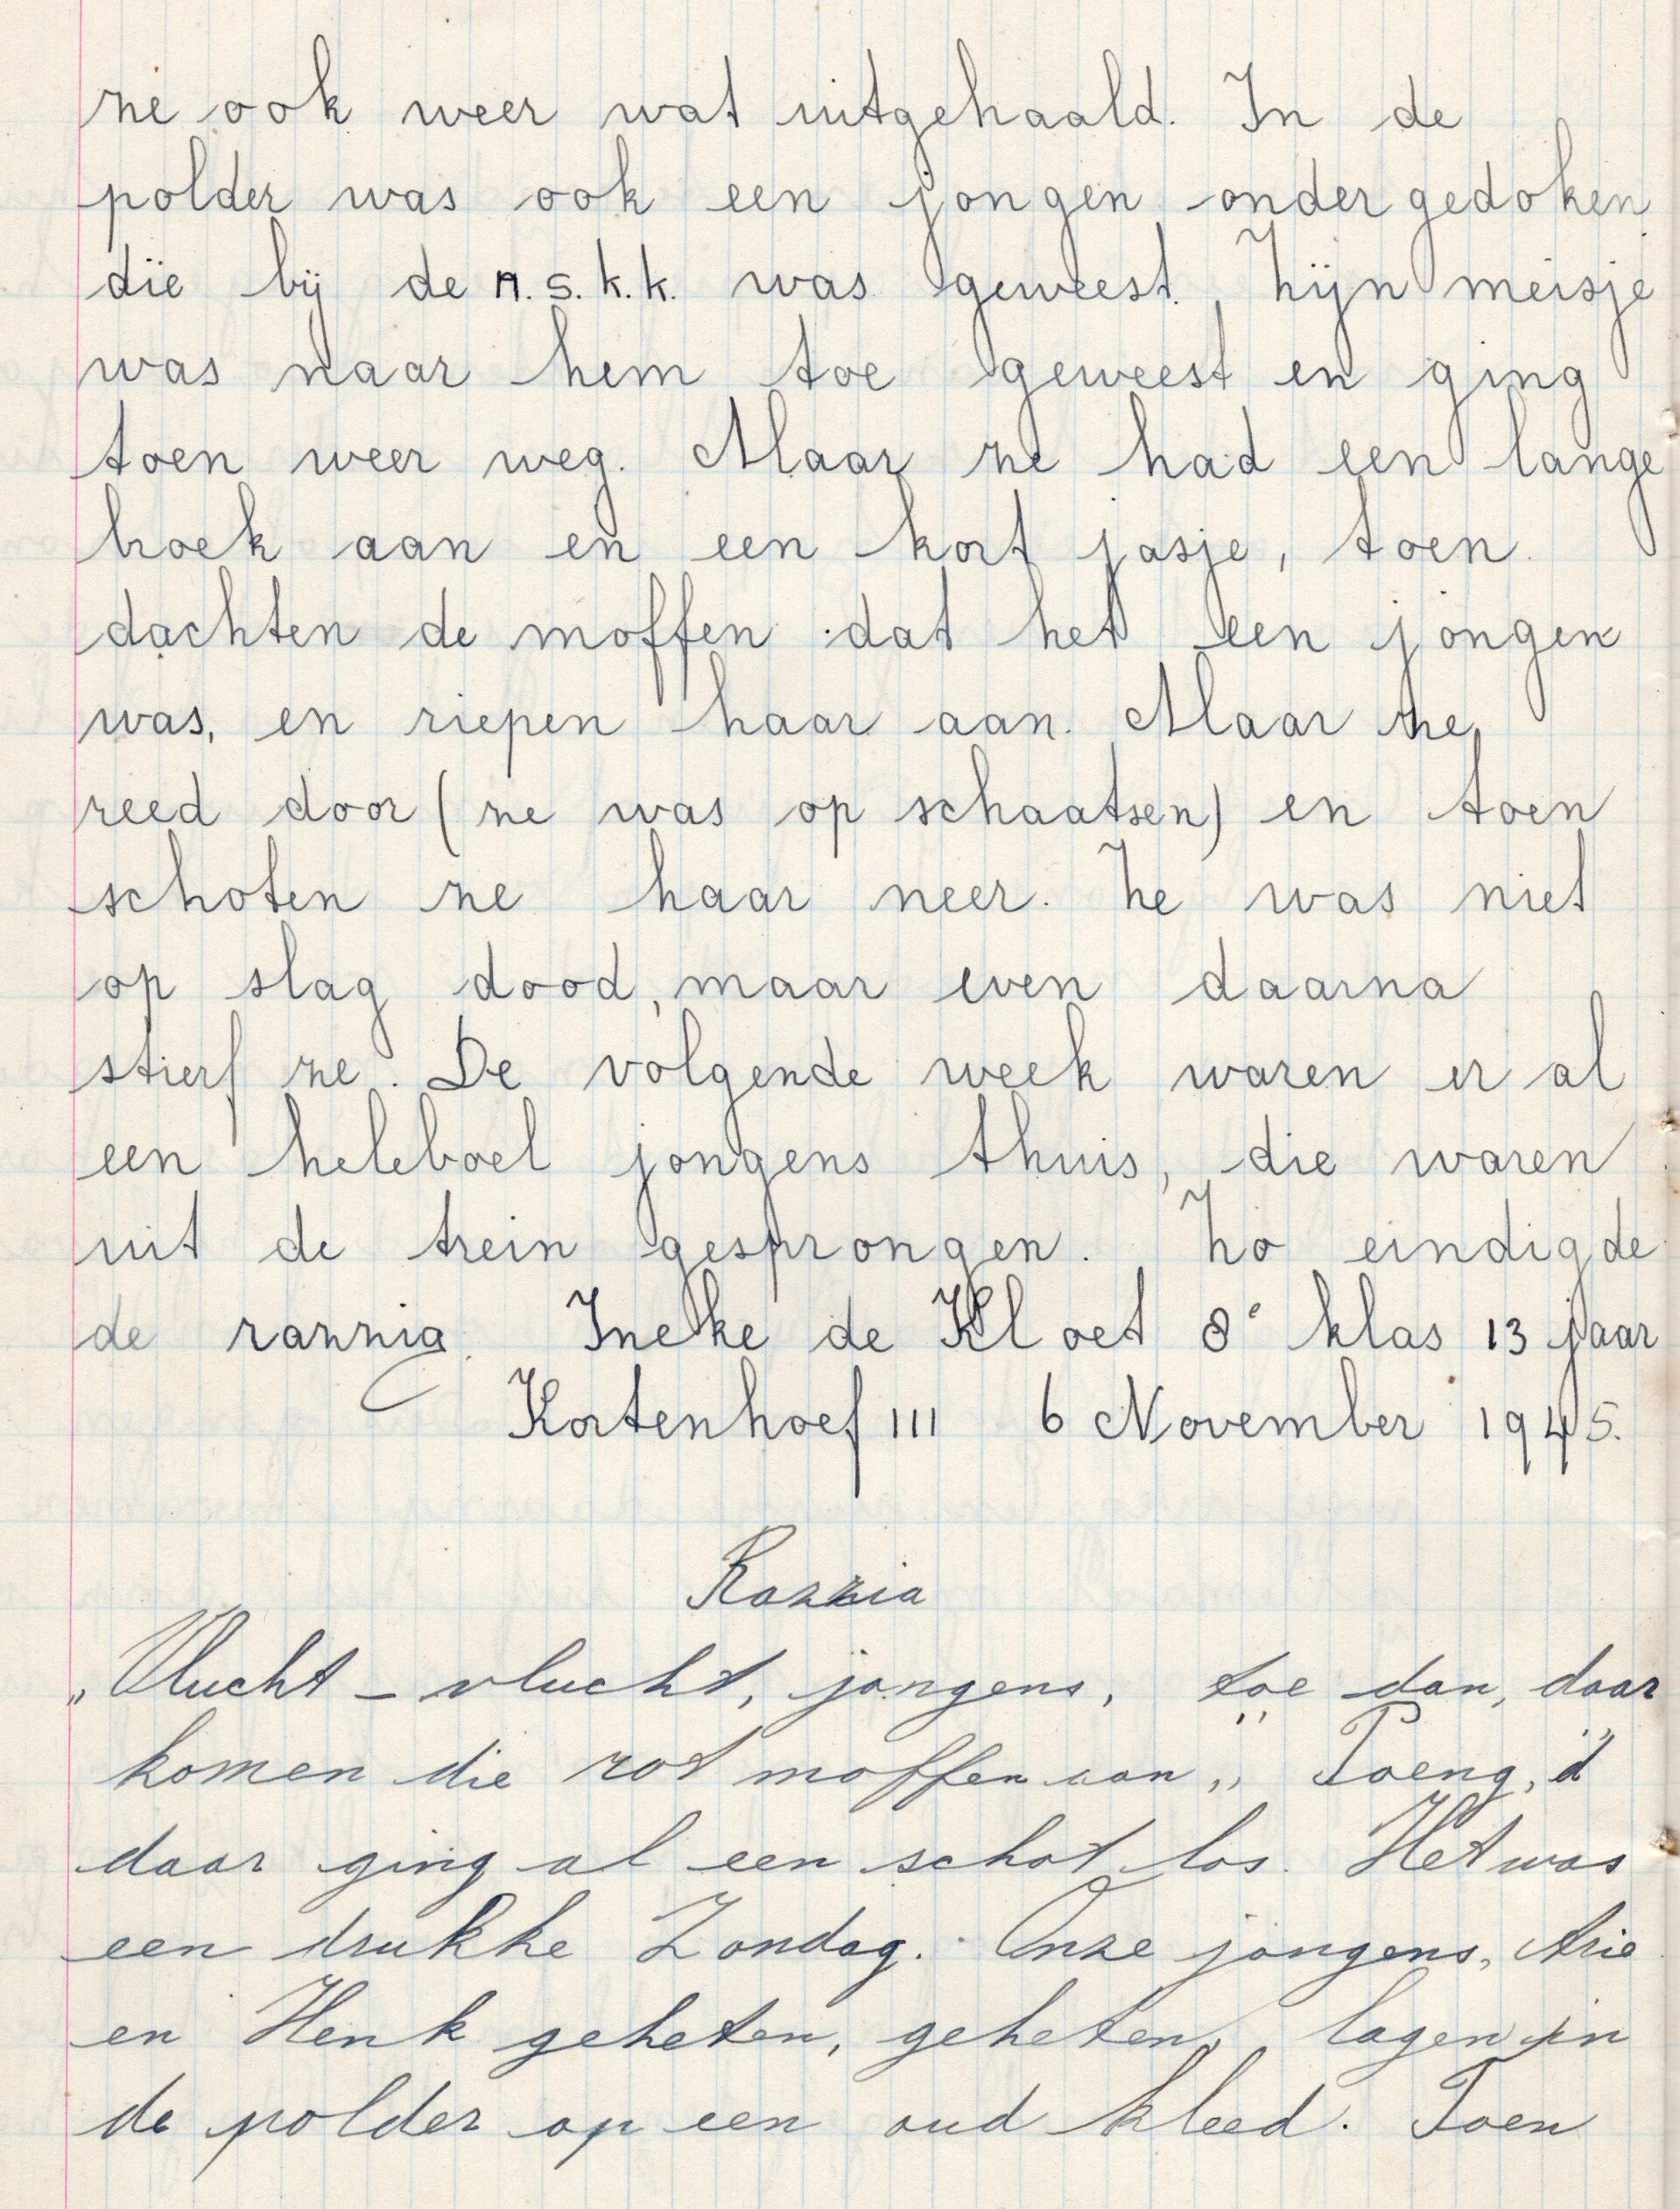 ze ook weer wat uitgehaald. In de
polder was ook een jongen ondergedoken
die bij de n.s.k.k. was geweest. Zijn meisje
was naar hem toe geweest en ging
toen weer weg. Maar ze had een lange
broek aan en een kort jasje, toen
dachten de moffen dat het een jongen
was, en riepen haar aan. Maar ze
reed door (ze was op schaatsen) en toen
schoten ze haar neer. Ze was niet
op slag dood, maar even daarna
stierf ze. De volgende week waren er al
een heleboel jongens thuis, die waren
uit de trein gesprongen. Zo eindigde
de razzia. Ineke de Kloet 8e klas 13 jaar
Kortenhoef III 6 November 1945.
Razzia
„Vlucht - vlucht, jongens, toe dan, daar
komen die rot moffen aan„ Poeng,
daar ging al een schot los. Het was
een drukke Zondag. Onze jongens, Arie
en Henk geheten, geheten, lagen in
de polder op een oud kleed. Toen